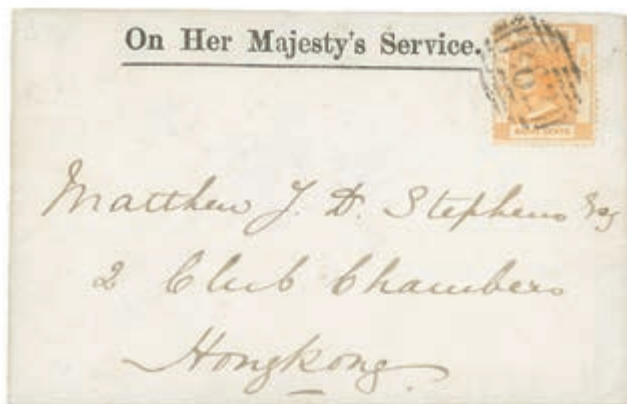 On Her Majesty's Service.
EIGHT CENTS
Matthew J. D. Stephens Esq
2 Club Chambers
Hongkong